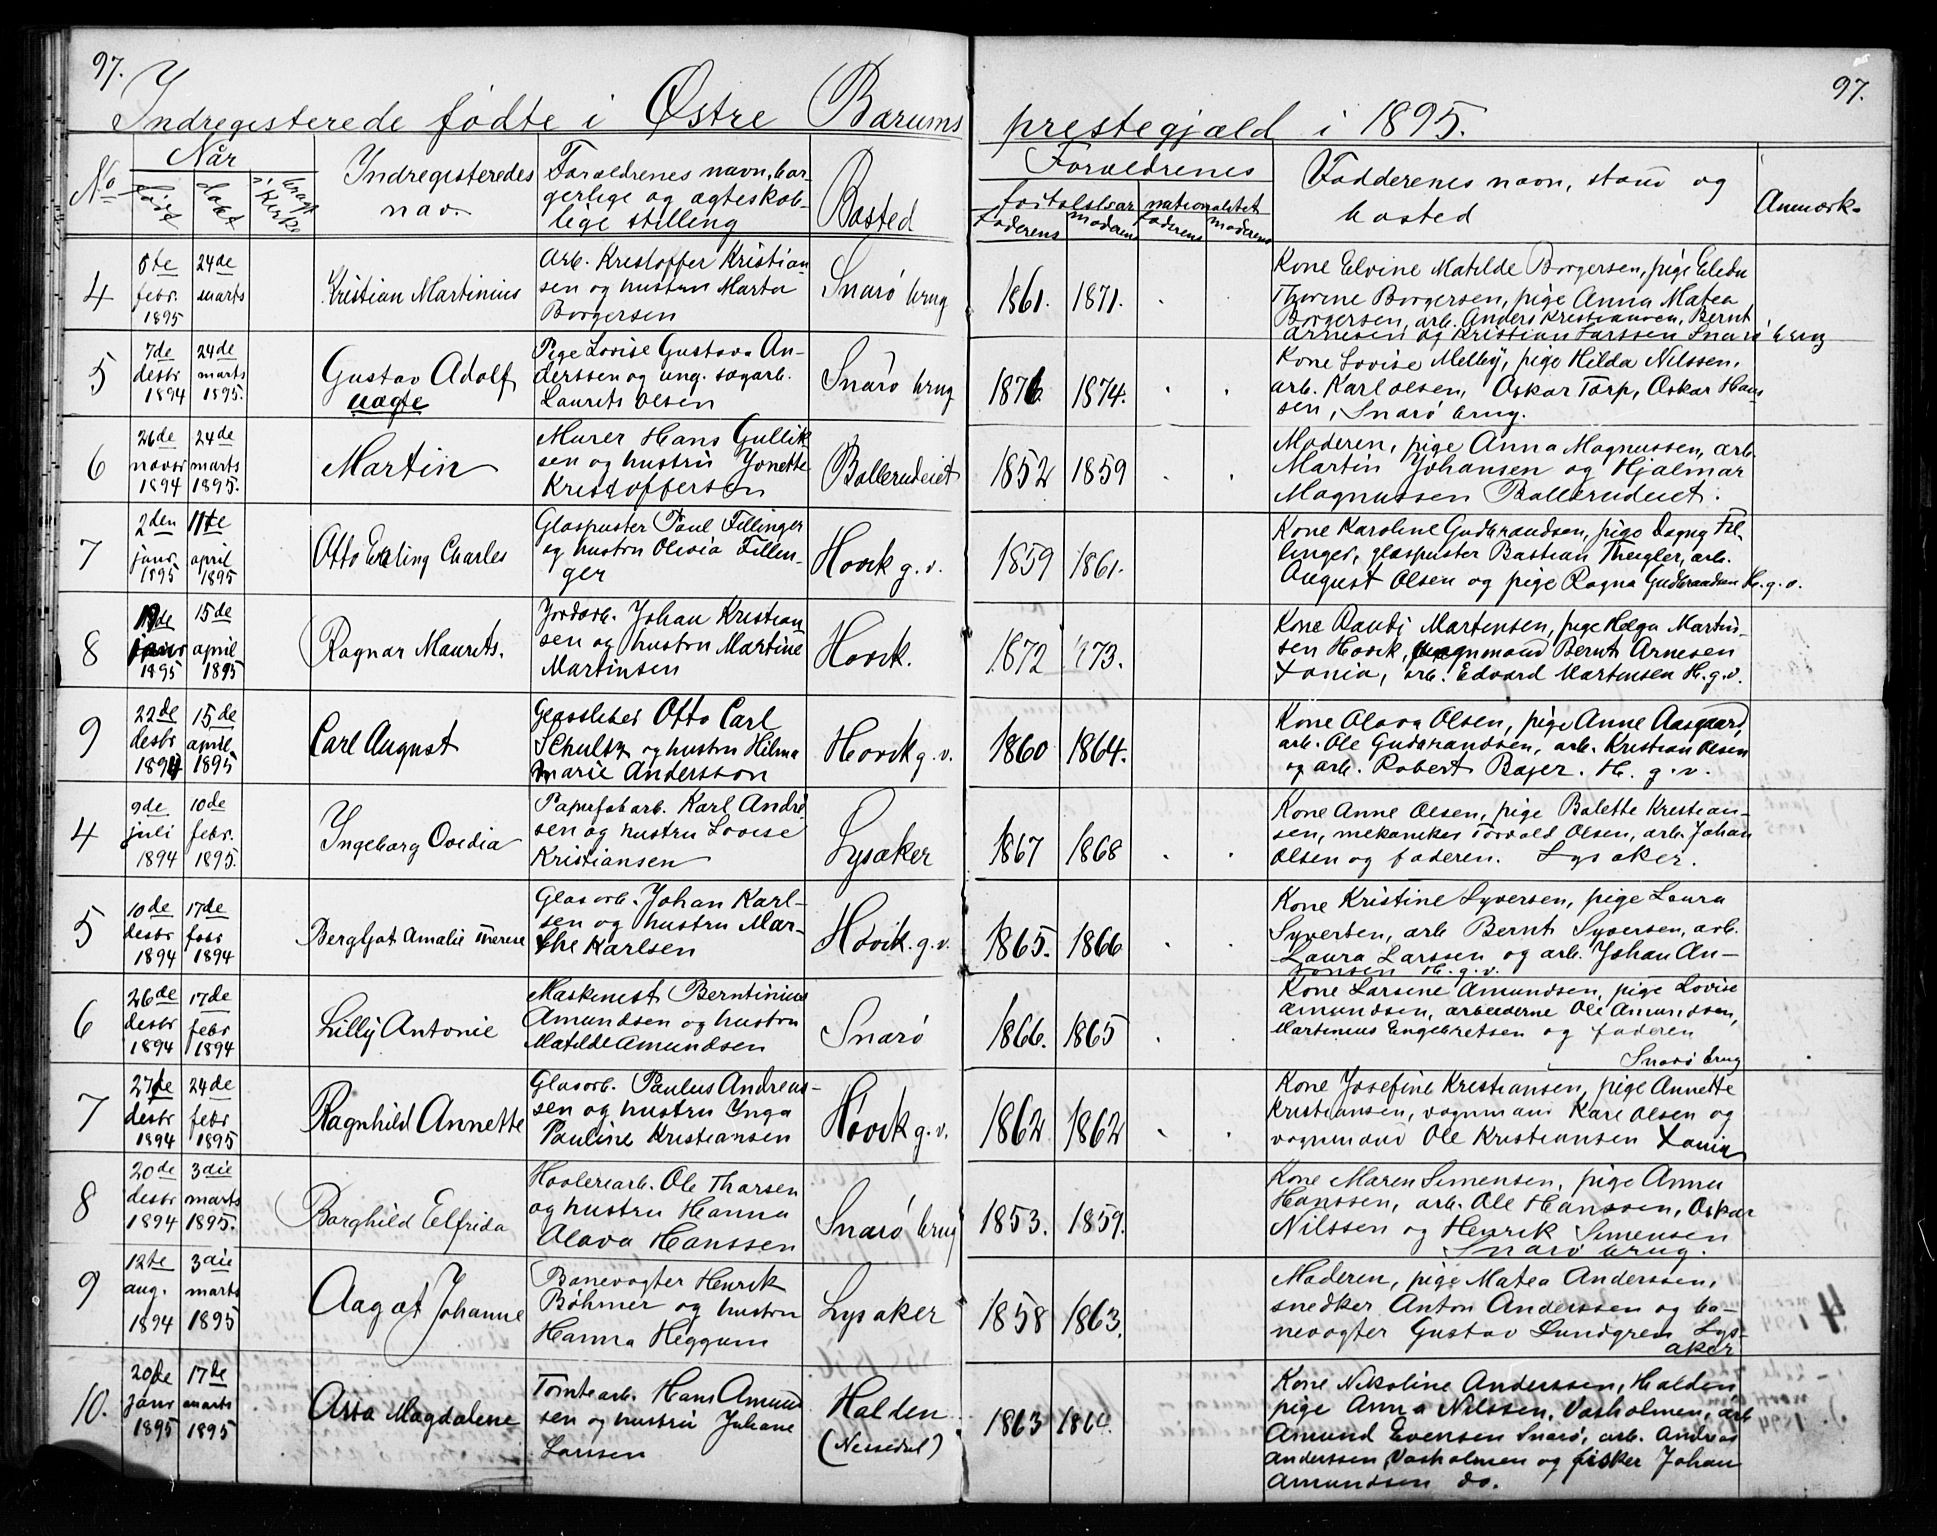 97.
97.
Indregisterede fødte i Østre Bærums prestegjæld i 1895.
No
Når
født
døbt
bragt i Kirke
Indregisteredes navn
Forældrenes navn, borgerlige og ægteskabelige stilling
Bosted
Forældrenes
fødselsaar
faderens
moderens
nationalitet
faderens
moderens
Fadderenes navn, stand og bosted
Anmærk.
4
8de febr. 1895
24de marts
Kristian Martinius
Arb. Kristoffer Kristian-
sen og hustru Marta
Borgersen
Snarø brug
1861.
1871.
Kone Elvine Matilde Borgersen, pige
Thorine Borgersen, pige Anna Matea
Borgersen, arb. Anders Kristiansen, Bernt
Arnesen og Kristian Larssen Snarø brug
5
7de desbr 1894
24de marts 1895.
Gustav Adolf
uægte
Pige Lovise Gustava An-
derssen og ung. sagarb.
Laurits Olsen
Snarø brug
1876
1874.
Kone Lovise Melby, pige Hilda Nilssen,
arb. Karl Olsen, Oskar Torp, Oskar Hans-
sen, Snarø brug.
6
26de novbr 1894
24de marts 1895.
Martin
Murer Hans Gullik-
sen og hustru Jonette
Kristoffersen
Ballerudeiet
1852
1859
Moderen, pige Anna Magnussen, arb.
Martin Johansen og Hjalmar
Magnussen Ballerudeiet.
7
2den janr 1895
11te april 1895
Otto Erling Charles
Glaspuster Paul Fillinger
og hustru Olivia Fillin-
ger
Høvik g. v.
1859
1861.
Kone Karoline Gudbrandsen, pige Dagny Fil-
linger, glaspuster Bastian Theigler, arb.
August Olsen og pige Ragna Gudbrandsen H. g. v.
8
janr 1895
15de april 1895
Ragnar Maurits.
Jordarb. Johan Kristian-
sen og hustru Martine
Martinsen
Høvik.
1872
1873.
Kone Randi Martensen, pige Helga Martin-
sen Høvik, vognmand Bernt Arnesen
Xania, arb. Edvard Martensen H. g. v.
9
22de desbr 1894
15de april 1895
Carl August
Glassleber Otto Carl
Schultz og hustru Hilma
Marie Andersson
Høvik g. v.
1860
1864.
Kone Olava Olsen, pige Anne Aasgaard,
arb. Ole Gudbrandsen, arb. Kristian Olsen
og arb. Robert Bajer. H. g. v.
4
9de juli 1894
10de febr. 1895.
Ingeborg Ovidia
Papirfabarb. Karl André-
sen og hustru Lovise
Kristiansen
Lysaker
1867
1868
Kone Anne Olsen, pige Balette Kristian-
sen, mekaniker Torvald Olsen, arb. Johan
Olsen og faderen. Lysaker.
5
10de desbr 1894
17de febr 1894
Bergljot Amalie Therese
Glasarb. Johan Karl-
sen og hustru Mar-
the Karlsen
Høvik. g. v.
1865.
1866
Kone Kristine Syversen, pige Laura
Syversen, arb Bernt Syversen, arb.
Laura Larssen og arb. Johan An-
tonsen H. g. v.
6
26de desbr 1894
17de febr 1894
Lilly Antonie
Maskinist Berntinius
Amundsen og hustru
Matilde Amundsen
Snarø
1866.
1865
Kone Larsine Amundsen, pige Lovise
Amundsen, arbeiderne Ole Amundsen,
Martinius Engebretsen og faderen
Snarø brug
7
27de desbr 1894
24de febr 1895
Ragnhild Annette
Glasarb. Paulus Andreas-
sen og hustru Inga
Pauline Kristiansen
Høvik g. v.
1862
1862
Kone Josefine Kristiansen, pige Annette
Kristiansen, vognmand Karl Olsen og
vognmand Ole Kristiansen Xania
8
20de desbr 1894
3die marts 1895.
Borghild Elfrida
Høvleriarb. Ole Thorsen
og hustru Hanna
Olava Hanssen
Snarø brug
1853.
1859.
Kone Maren Simensen, pige Anna
Hanssen, arb. Ole Hanssen, Oskar
Nilssen og Henrik Simensen
Snarø brug.
9
12te aug. 1894
3die marts 1895
Aagot Johanne
Banevogter Henrik
Bøhmer og hustru
Hanna Heggum
Lysaker
1858
1863.
Moderen, pige Matea Anderssen,
snedker Anton Anderssen og ba-
nevogter Gustav Lundgren Lys-
aker
10.
20de janr 1895
17de marts 1895
Asta Magdalene
Tomtearb. Hans Amund-
sen og hustru Juliane
Larssen
Halden
(Nessedal)
1863
Kone Nikoline Anderssen, Halden
pige Anna Nilssen, Vasholmen, arb
Amund Evensen Snarø, arb. Andreas
Anderssen, Vasholmen og fisker Johan
Amundsen do.